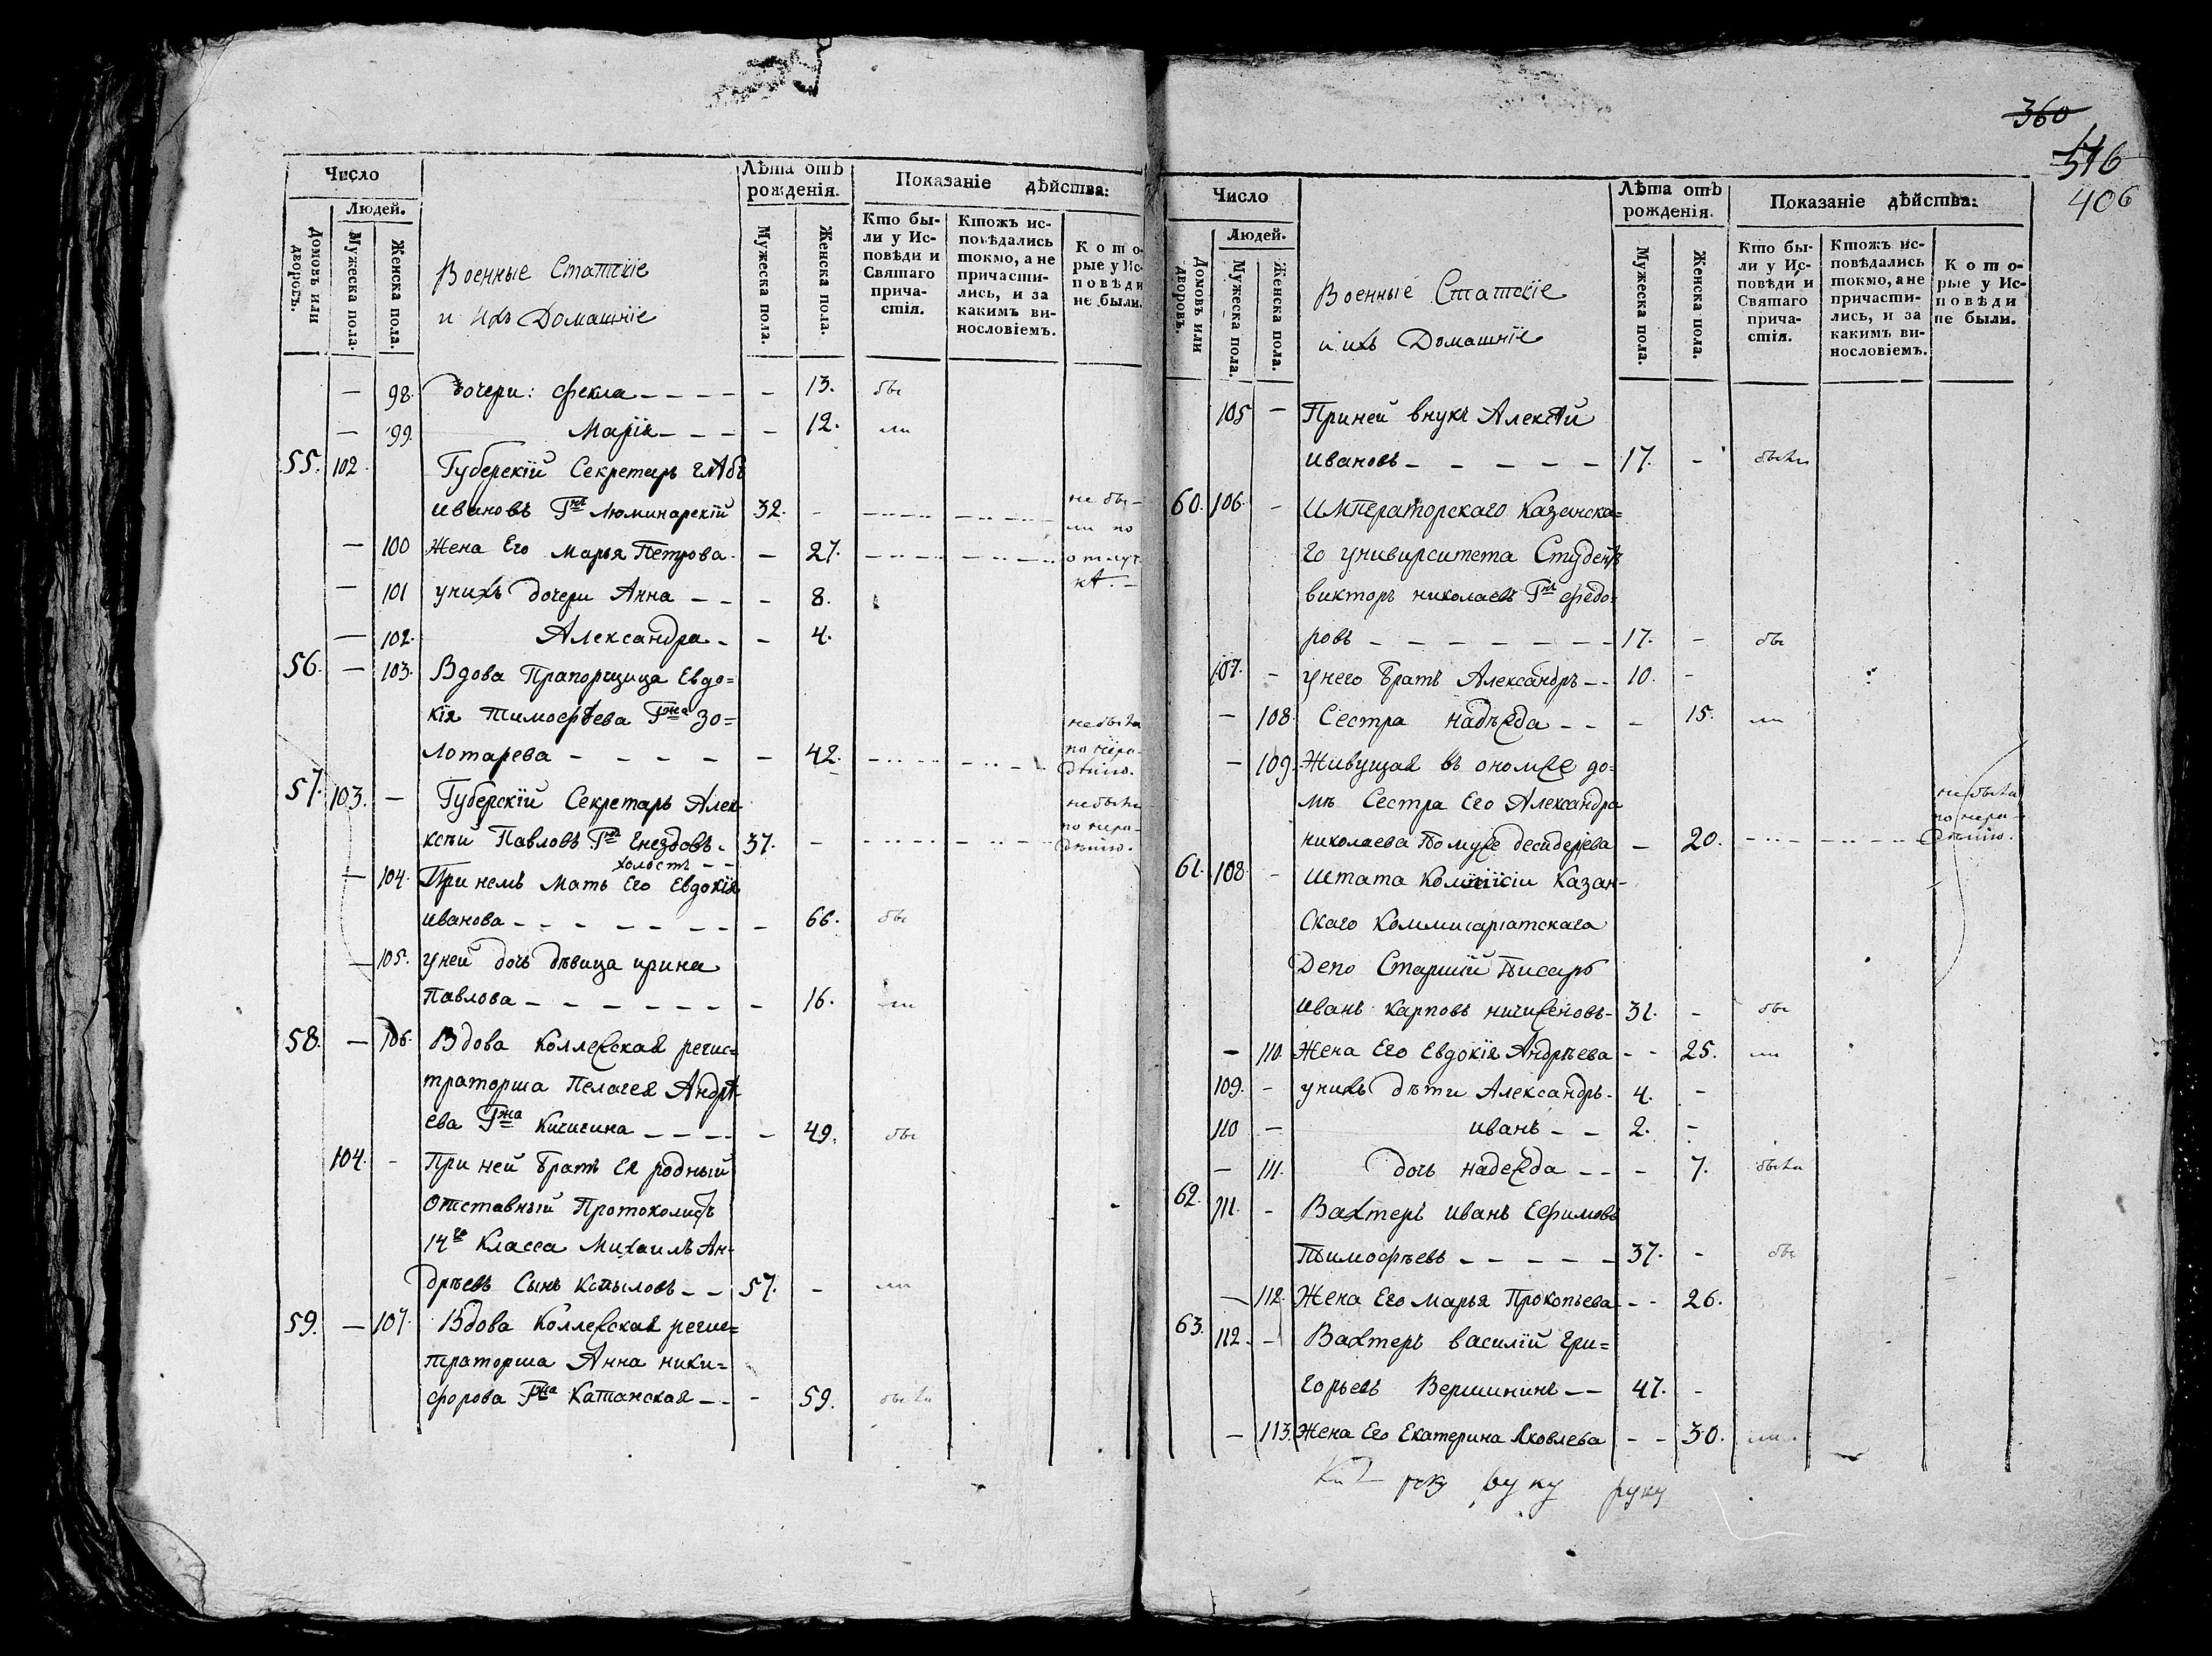 Число
Людей.
Домовъ или дворовъ.
Мужеска пола.
Женска пола.
Военные Статскіе
и ихъ Домашніе
Лѣта отъ рожденія.
Мужеска пола.
Женска пола.
Показаніе дѣйства:
Кто бы-
ли у Ис-
повѣди и
Святаго
прича-
стія.
Ктожъ ис-
повѣдались
токмо, а не
причасти-
лись, и за
какимъ ви-
нословіемъ.
К о т о-
рые у Ис-
п о в ѣ д и
не были.
— 98. дочери: Фекла — — — — — 13. бы
— 99. Марія — — — — 12. ли
55. 102. Губерскій Секретарь Глѣбъ
Ивановъ Гнъ Люминарскій 32. - не бы-
ли по
— 100 Жена Его Марья Петрова. — 27. отлуч
кѣ. —
— 101 унихъ дочери Анна — — — 8.
— 102. Александра — — 4.
56. — 103. Вдова Прапорщица Евдо=
кія Тимофѣева Гжа Зо=
лотарева — — — — — — 42. небыла
по нера-
дѣнію.
57. 103. — Губерскій Секретарь Алек
ксѣй Павловъ Гнъ Гнездовъ. 37. - небыли
по нера-
дѣнію.
холостъ — —
— 104. При немъ Мать Его Евдокія
Иванова — — — — — — — — 66. бы
— 105. уней дочь дѣвица Ирина
Павлова — — — — — — — 16. ли
58. — 106. Вдова Коллежская регис=
траторша Пелагея Андрѣ
ева Гжа Кичигина — — — — — 49. бы
104. - При ней Братъ Ея родный
Отставный Протоколистъ
14го Класса Михаилъ Ан-
дрѣевъ Сынъ Копыловъ — — 57. - ли
59. — 107. Вдова Коллежская регис=
траторша Анна Ники=
форова Гжа Катанская — — - 59. была
360
406
Число
Людей.
Домовъ или дворовъ.
Мужеска пола.
Женска пола.
Военные Статскіе
и ихъ Домашніе
Лѣта отъ рожденія.
Мужеска пола.
Женска пола.
Показаніе дѣйства:
Кто бы-
ли у Ис-
повѣди и
Святаго
прича-
стія.
Ктожъ ис-
повѣдались
токмо, а не
причасти-
лись, и за
какимъ ви-
нословіемъ.
К о т о-
рые у Ис-
п о в ѣ д и
не были.
105 — При ней внукъ Алексѣй
Ивановъ — — — — — 17. - былъ
60. 106. - Императорскаго Казанска=
го университета Студентъ
Викторъ Николаевъ Гнъ Федо=
ровъ — — — — — — — 17. - бы
107. - унего Братъ Александръ — - 10. -
— 108. Сестра надежда — — — 15. ли
— 109. Живущая въ ономже до=
мѣ Сестра Его Александра
Николаева Помуже Десидерьева — 20. небыла
по нера-
дѣнію.
61. 108. - Штата Коммисіи Казан-
Скаго Коммисаріатскаго
Депо Старшій Писарь
Иванъ Карповъ 31. - бы
— 110. Жена Его Евдокія Андрѣева - - 25. ли
109. - унихъ дѣти Александръ. 4. -
110 — Иванъ — — 2. -
— 111. дочь надежда — — - 7. была
62. 111. - Вахтеръ Иванъ Ефимовъ
Тимофѣевъ — — — — — 37. - бы
— 112. Жена Его Марья Прокопьева - - 26.
63. 112. - Вахтеръ Василій Гри=
горьевъ Вершининъ — — 47. -
— 113. Жена Его Екатерина Яковлева - - 30. ли.
руку